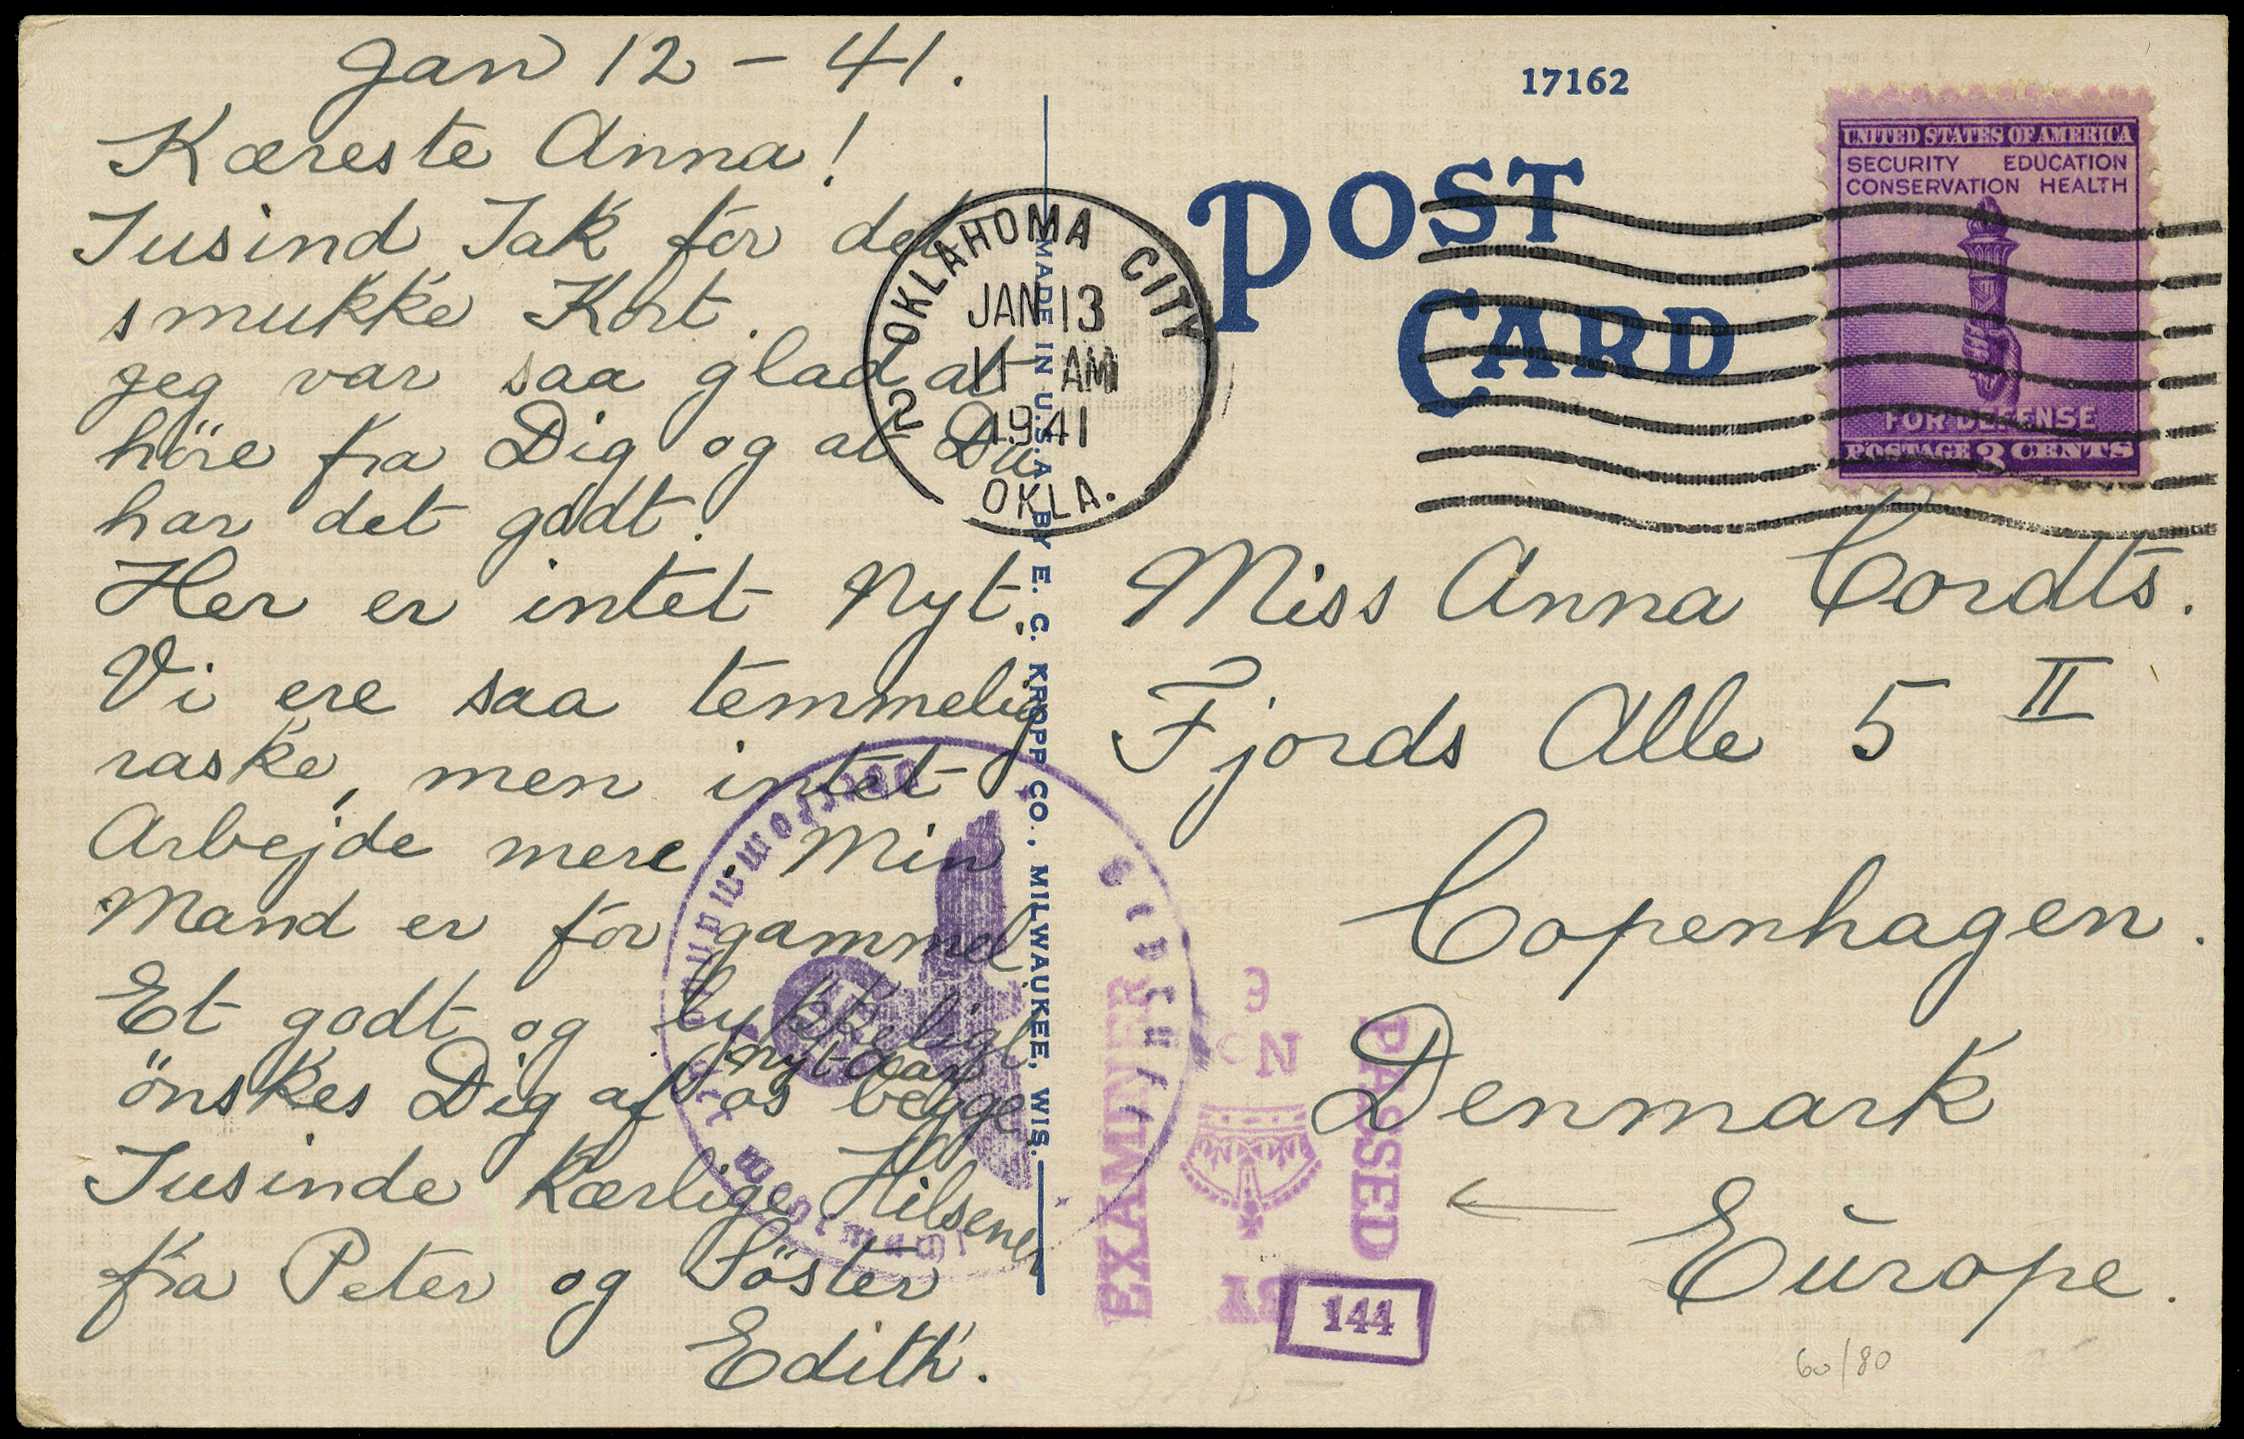 Jan 12 - 41.
Kæreste Anna!
Tusind Tak for det
smukke Kort.
jeg var saa glad at
höre fra Dig og at Du
har det godt.
Her er intet Nyt.
Vi ere saa temmelig
raske, men intet
Arbejde mere. Min
Mand er for gammel
Et godt og lykkeligt
nyt Aar
önskes Dig af os begge
Tusinde Kærlige Hilsener
fra Peter og Söster
Edith.
OKLAHOMA CITY
2
JAN 13
11 AM
1941
OKLA.
MADE IN U.S.A. BY E. C. KROPP CO., MILWAUKEE, WIS.
17162
POST
CARD
UNITED STATES OF AMERICA
SECURITY EDUCATION
CONSERVATION HEALTH
FOR DEFENSE
POSTAGE 3 CENTS
Miss Anna Cordts.
Fjords Alle 5 II
Copenhagen.
Denmark
Europe.
Oberkommando
Wehrmacht
PASSED
BY
No 3
EXAMINER
144
60/80